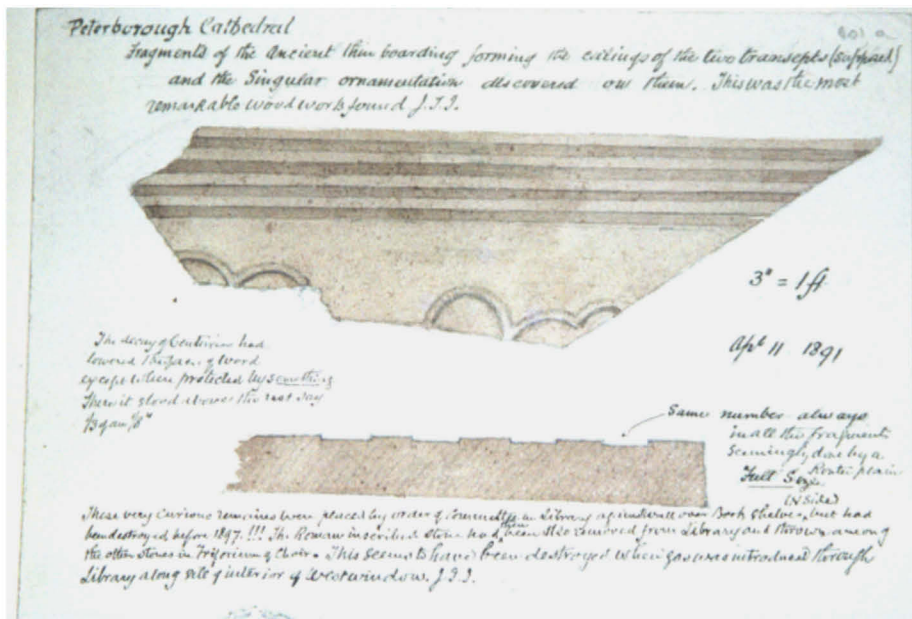 Peterborough Cathedral
801 a
Fragments of the ancient thin boarding forming the ceilings of the two transepts (supposed)
and the Singular ornamentation discovered on them. This was the most
remarkable wood work found J.T.I.
3" = 1 ft
Apl 11 1891
The decay of Centuries had
lowered the face of wood
except where protected by something
There it stood above the rest say
Same number always
in all the fragments
seemingly done by a
Router plain
Full Size
(N side)
These very curious remains were placed by order of Committee in Library against wall over Book shelves, but had
been destroyed before 1897.!!! The Roman inscribed stone had then been also removed from Library and thrown among
the other stones in Triforium of Choir. This seems to have been destroyed when gas was introduced through
Library along sill of interior of West window. J.T.I.